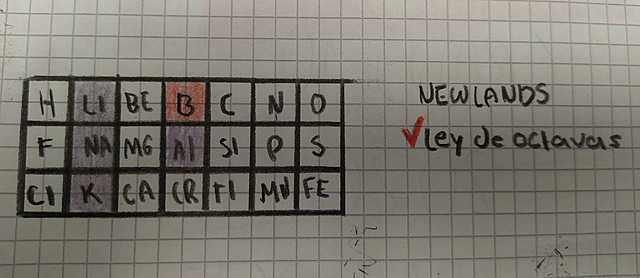 H LI BE B C N O
F NA MG Al SI P S
Cl K CA CR TI MN FE
NEWLANDS
✓Ley de octavas